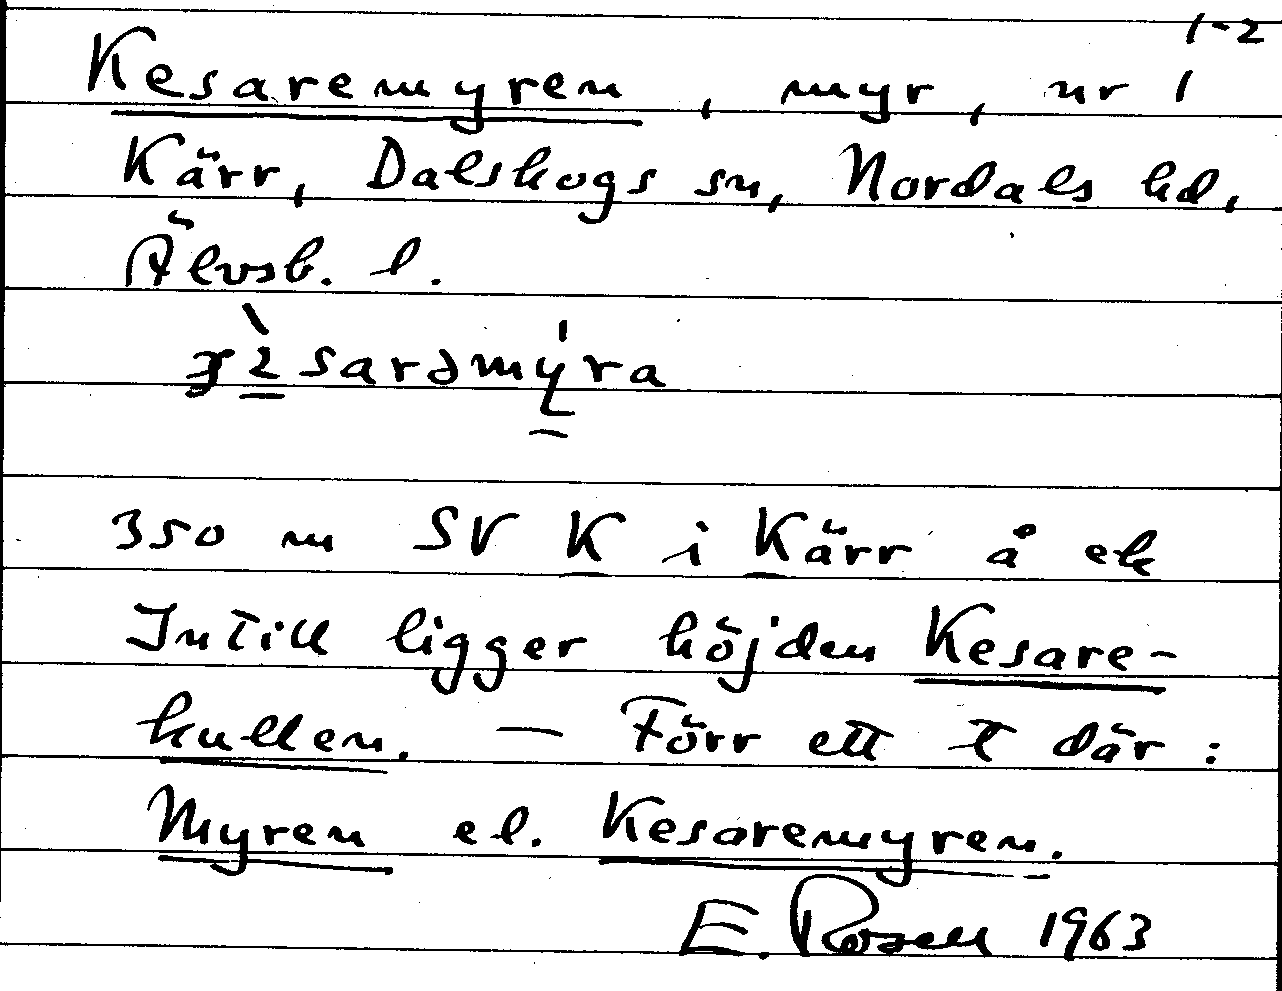 1-2
Kesaremyren, myr, nr 1
Kärr, Dalskogs sn, Nordals hd,
Älvsb. l.
350 m SV K i Kärr å ek
Intill ligger höjden Kesare-
kullen. — Förr ett t där:
Myren el. Kesaremyren.
E. Rosell 1963